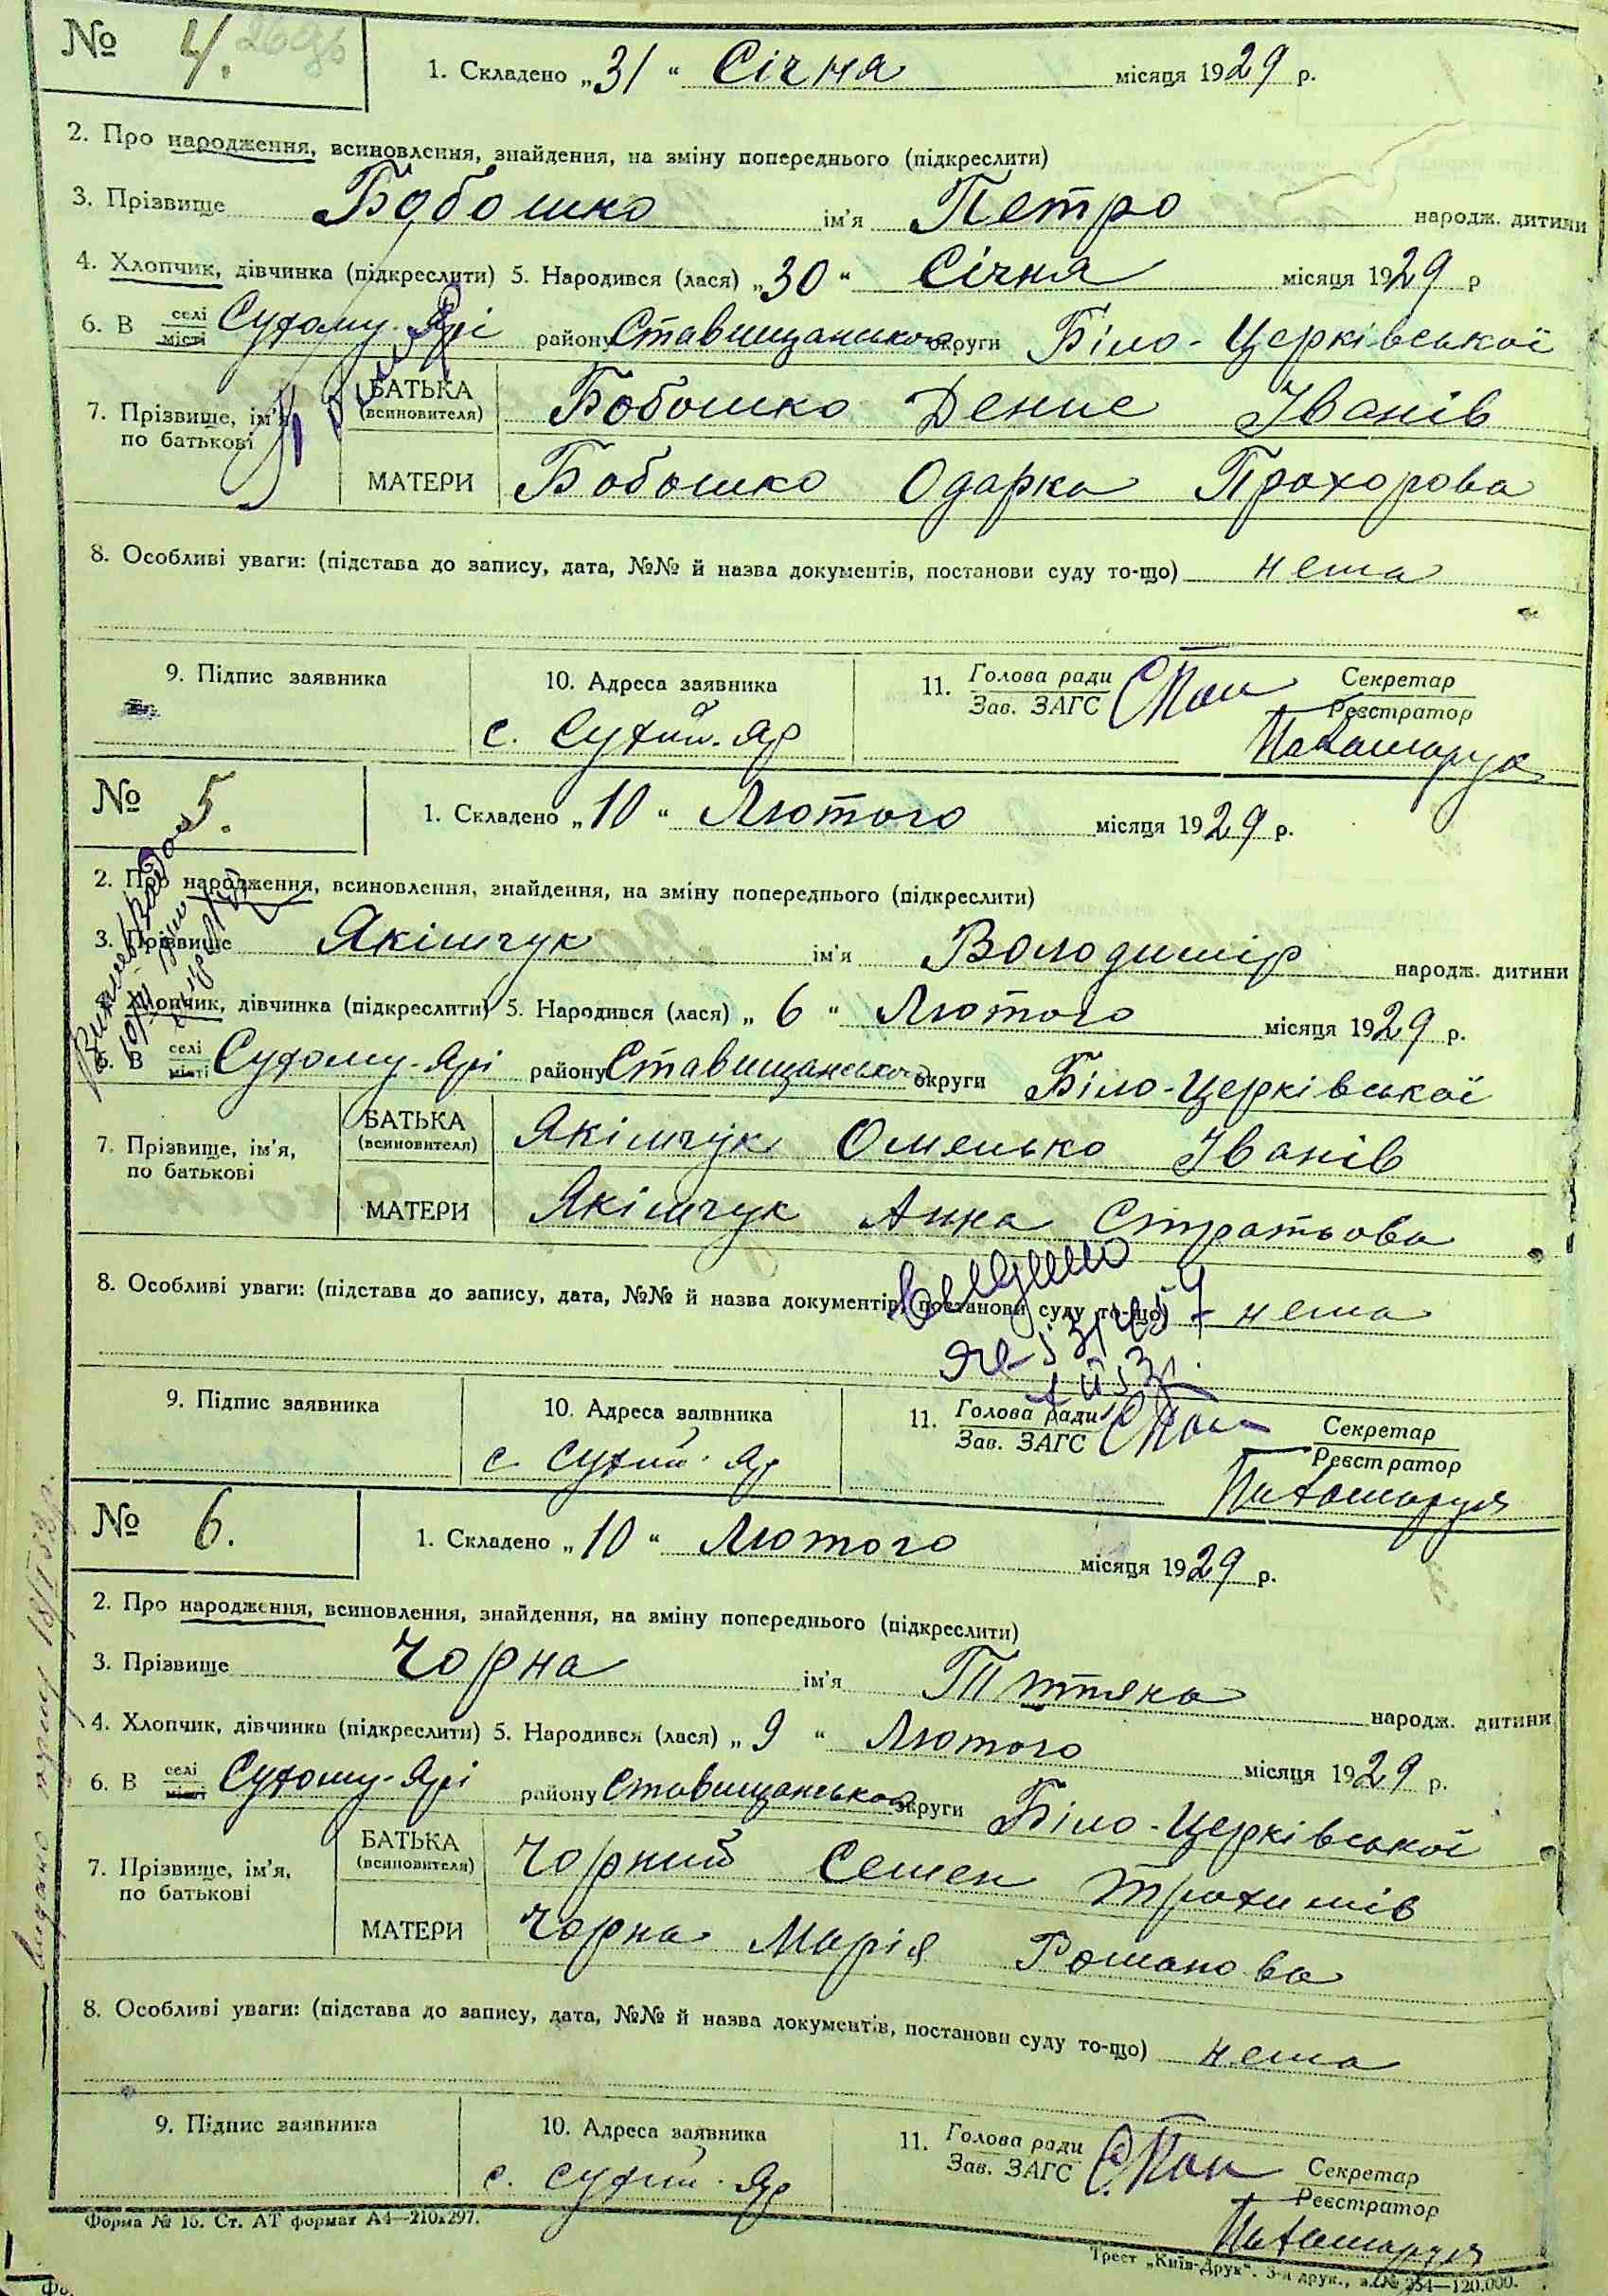 № 4.
1. Складено „31“ Січня місяця 1929 р.
2. Про народження, всиновлення, знайдення, на зміну попереднього (підкреслити)
3. Прізвище Бобошко ім'я Петро народж. дитини
4. Хлопчик, дівчинка (підкреслити) 5. Народився (лася) „30“ Січня місяця 1929 р
6. В селі місті Сухому-Ярі району Ставищанського округи Біло-Церківської
7. Прізвище, ім'я, по батькові
БАТЬКА (всиновителя) Бобошко Денис Іванів
МАТЕРИ Бобошко Одарка Прохорова
8. Особливі уваги: (підстава до запису, дата, №№ й назва документів, постанови суду то-що) нема
9. Підпис заявника
10. Адреса заявника
с. Сухий-Яр
11. Голова ради Зав. ЗАГС
Секретар Реєстратор
№ 5.
1. Складено „10“ Лютого місяця 1929 р.
2. Про народження, всиновлення, знайдення, на зміну попереднього (підкреслити)
3. Прізвище Якімчук ім'я Володимір народж. дитини
4. Хлопчик, дівчинка (підкреслити) 5. Народився (лася) „6“ Лютого місяця 1929 р.
6. В селі місті Сухому-Ярі району Ставищанського округи Біло-Церківської
7. Прізвище, ім'я, по батькові
БАТЬКА (всиновителя) Якімчук Омелько Іванів
МАТЕРИ Якімчук Анна Стратьова
8. Особливі уваги: (підстава до запису, дата, №№ й назва документів, постанови суду то-що) нема
9. Підпис заявника
10. Адреса заявника
с Сухий-Яр
11. Голова ради Зав. ЗАГС
Секретар Реєстратор
№ 6.
1. Складено „10“ Лютого місяця 1929 р.
2. Про народження, всиновлення, знайдення, на зміну попереднього (підкреслити)
3. Прізвище Чорна ім'я народж. дитини
4. Хлопчик, дівчинка (підкреслити) 5. Народився (лася) „9“ Лютого місяця 1929 р.
6. В селі місті Сухому-Ярі району Ставищанського округи Біло-Церківської
7. Прізвище, ім'я, по батькові
БАТЬКА (всиновителя) Чорний Семен Трохимів
МАТЕРИ Чорна Марія Романова
8. Особливі уваги: (підстава до запису, дата, №№ й назва документів, постанови суду то-що) нема
9. Підпис заявника
10. Адреса заявника
с. Сухий-Яр
11. Голова ради Зав. ЗАГС
Секретар Реєстратор
Форма № 16. Ст. АТ формат А4—210х297.
Трест „Київ-Друк“. 3-я друк., з. № 254—120.000.